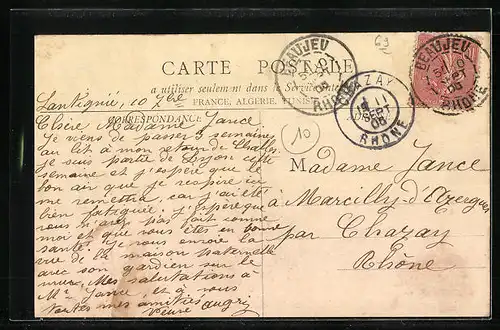 CARTE POSTALE
a utiliser seulement dans le Service intérieur
FRANCE, ALGERIE, TUNISIE
CORRESPONDANCE
BEAUJEU
RHONE
CHAZAY
11
SEPT
RHONE
BEAUJEU
RHONE
69
10
Lantignié, 10 7bre
Chère Madame Jance
Je viens de passer 3 semaines
au lit à mon retour de
je suis partie de Dijon cette
semaine et j'espère que le
bon air que je respire ici me
remettra, car j'ai été
bien fatiguée. J'espère que
vous n'avez pas fait comme
moi et que vous êtes en bonne
santé. Je vous envoie la
vue de la maison paternelle
avec son gardien sur le
mur. Mes salutations à
Mr Jance et à vous
toutes mes amitiés
Veuve
Madame Jance
à Marcilly-d'Azergues
par Chazay
Rhône